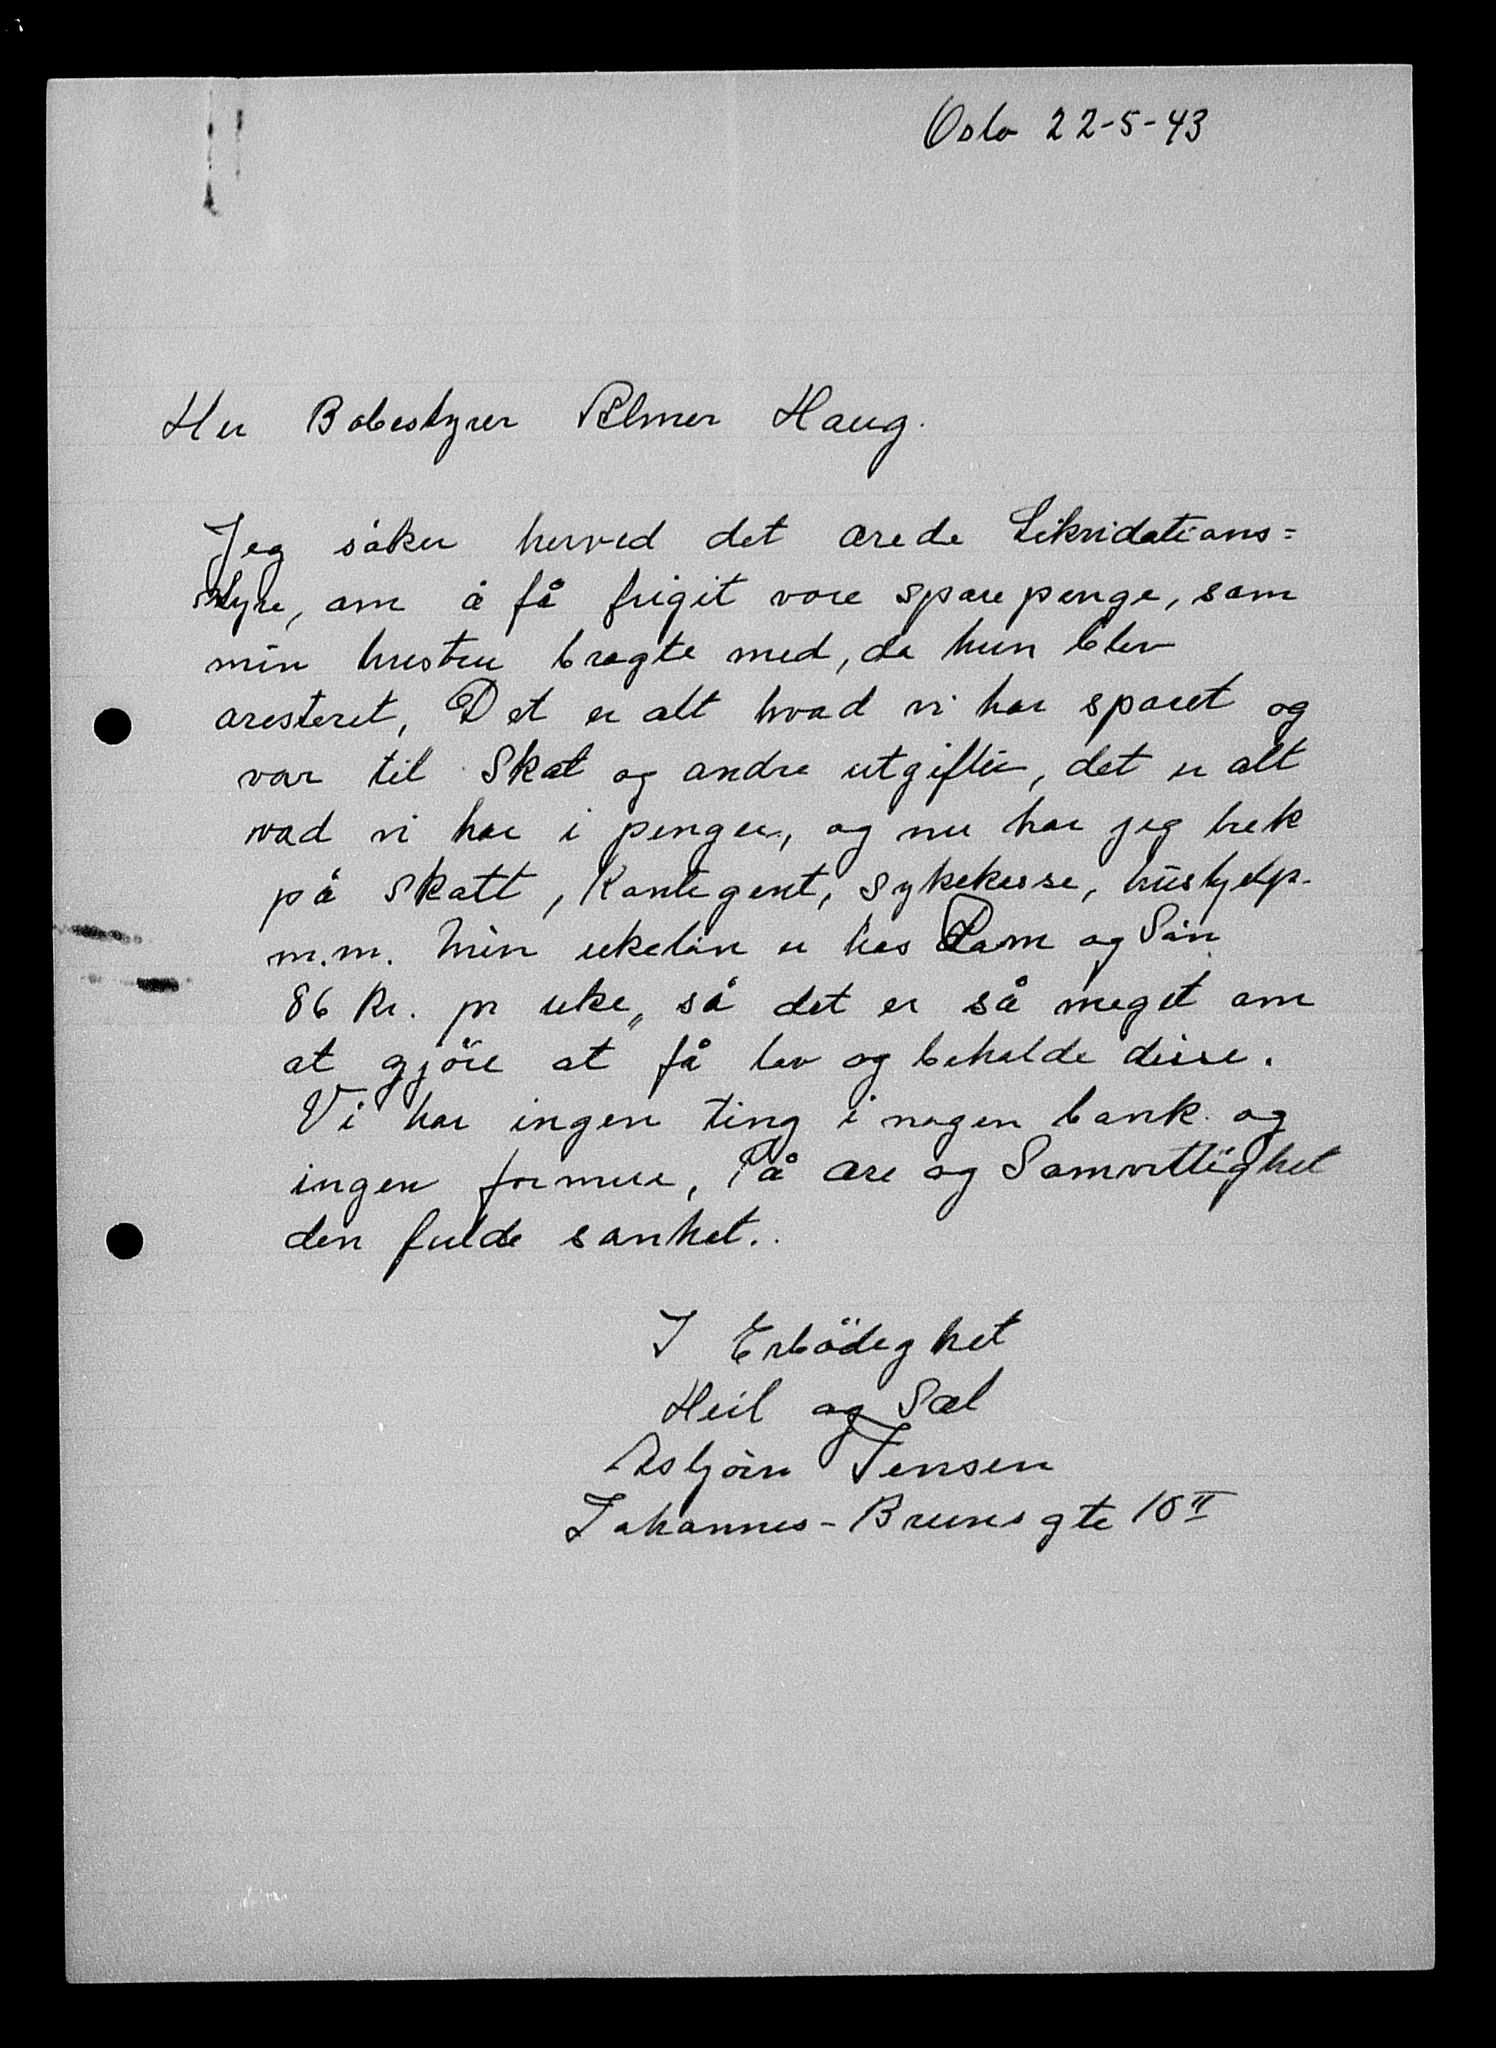 Oslo 22-5-43
Her Bobestyrer Almer Haug.
Jeg søker herved det ærede Likvidations=
styre, om å få frigit vore sparepenge, som
min hustru bragte med, da hun blev
aresteret, Det er alt hvad vi har sparet og
var til Skat og andre utgifter, det er alt
vad vi har i penger, og nu har jeg trek
på Skatt, Kontigent, Sykekasse, hushjelp.
m.m. Min ukelön er hos Dam og Sön
86 kr. pr uke,, så det er så meget om
at gjöre at få lov og beholde disse.
Vi har ingen ting i nogen bank og
ingen formue, På ære og Samvittighet
den fulde sanhet..
I Erbödighet
Heil og Sæl
Asbjörn Jensen
Johannes-Bruns gte 10 II